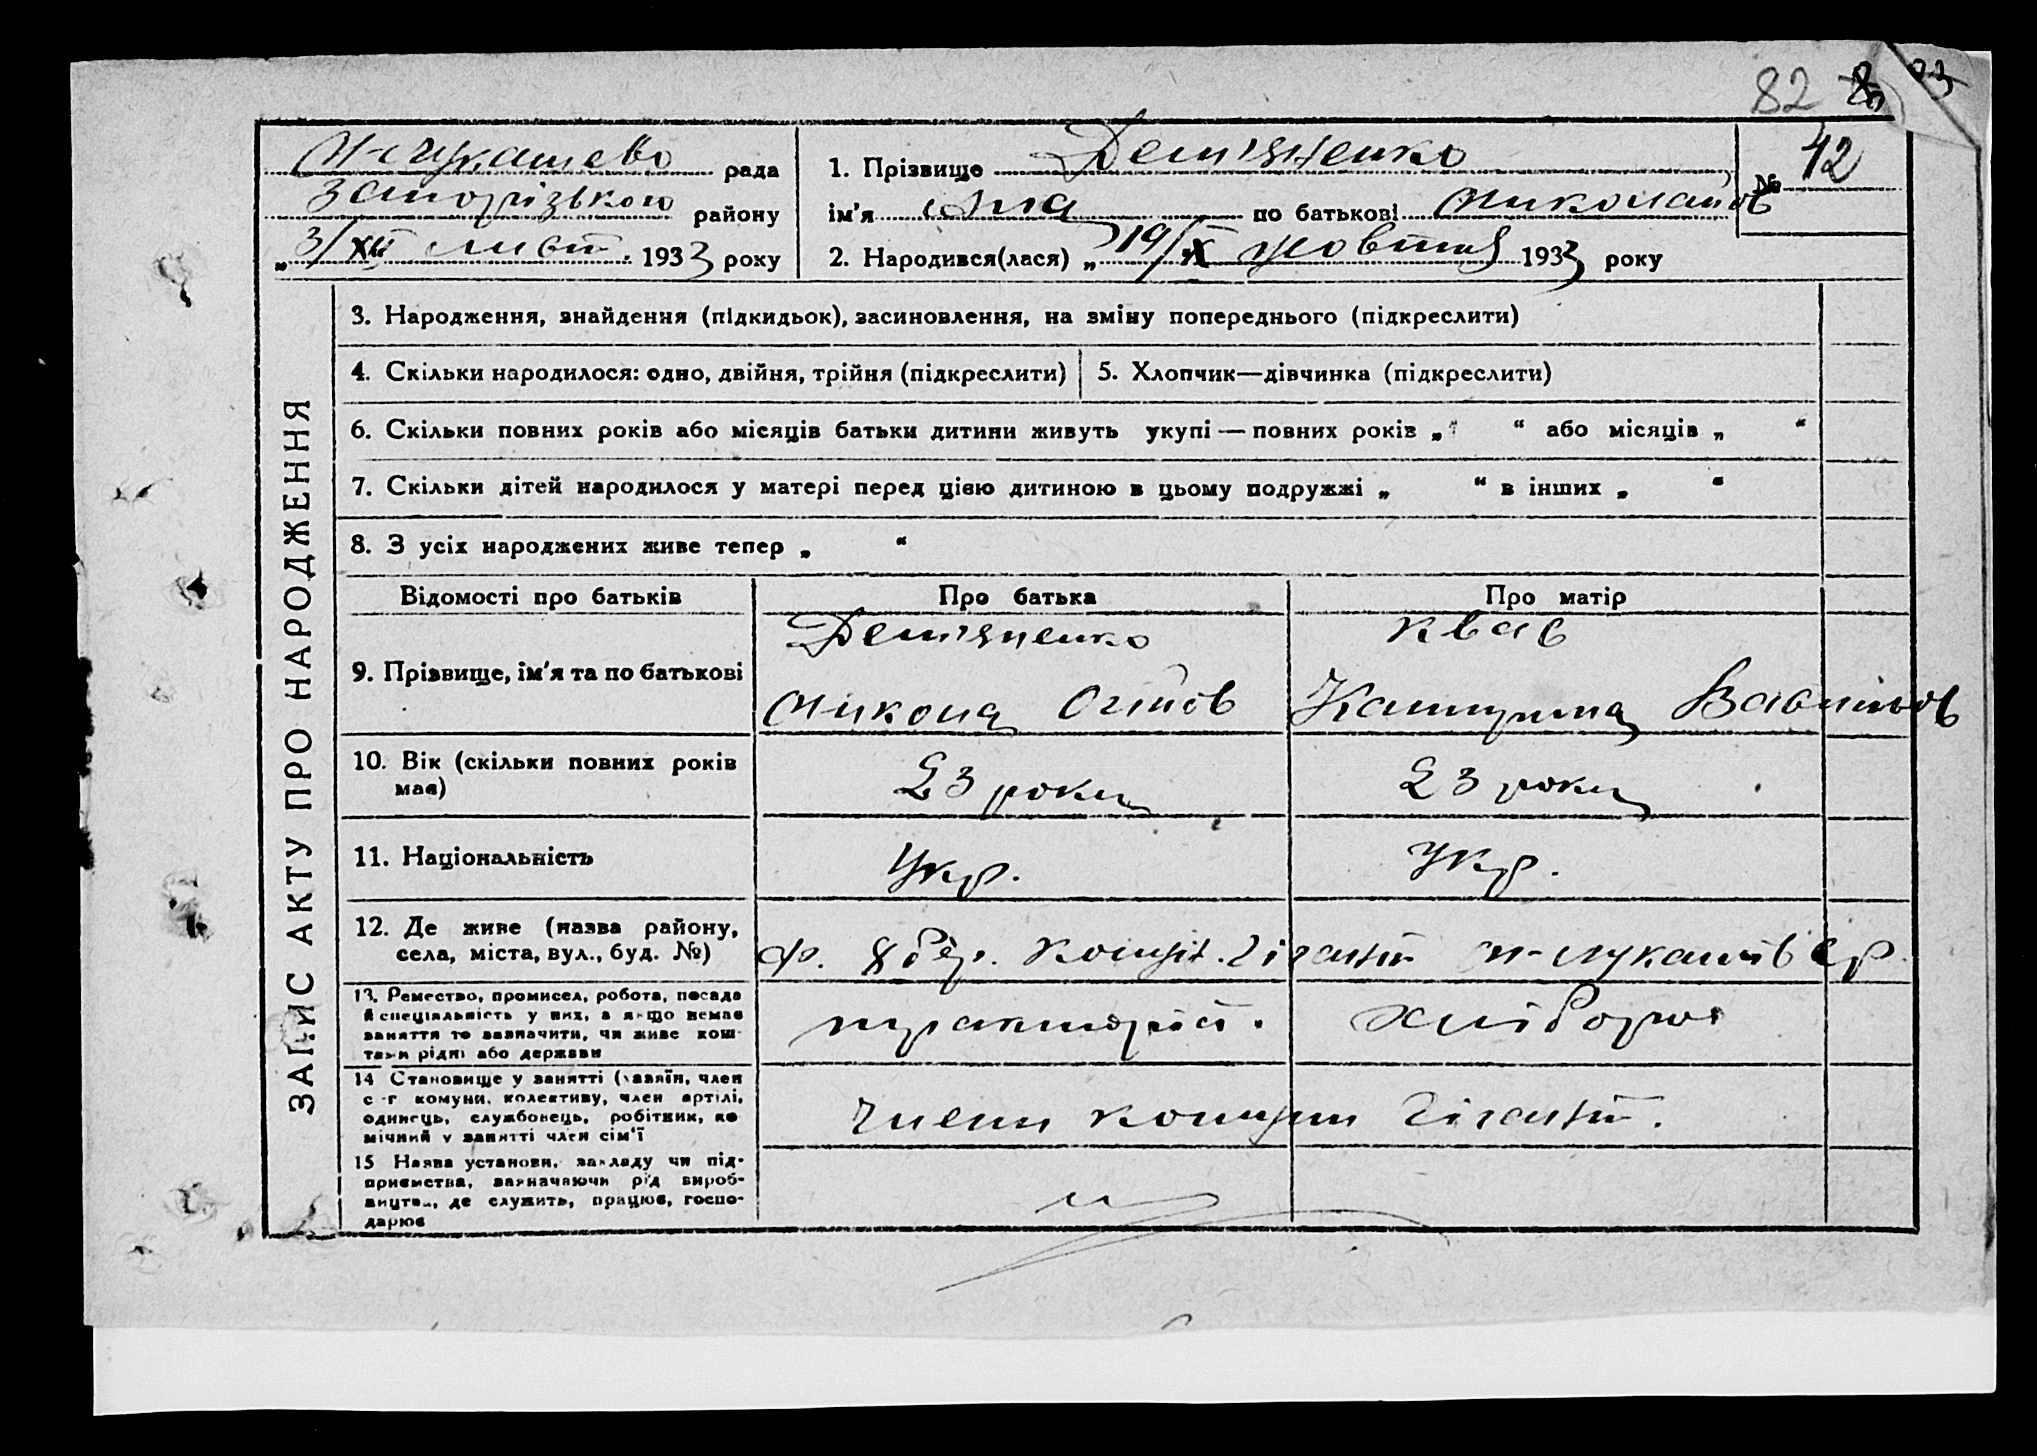 82
рада
1. Прізвище Дем'яненко
№ 42
Запорізького району
ім'я по батькові Миколаїв
„3/XI лист. 1933 року
2. Народився(лася) „19/X жовтня 1933 року
ЗАПИС АКТУ ПРО НАРОДЖЕННЯ
3. Народження, знайдення (підкидьок), засиновлення, на зміну попереднього (підкреслити)
4. Скільки народилося: одно, двійня, трійня (підкреслити)
5. Хлопчик—дівчинка (підкреслити)
6. Скільки повних років або місяців батьки дитини живуть укупі — повних років „ “ або місяців „ “
7. Скільки дітей народилося у матері перед цією дитиною в цьому подружжі „ “ в інших „ “
8. З усіх народжених живе тепер „ “
Відомості про батьків
Про батька
Про матір
9. Прізвище, ім'я та по батькові
Дем'яненко
Микола
Квас
Катерина
10. Вік (скільки повних років має)
23 роки
23 роки
11. Національність
Укр.
Укр.
12. Де живе (назва району,
села, міста, вул., буд. №)
Гігант
13. Ремество, промисел, робота, посада
й спеціяльність у них, а якщо немає
заняття то зазначити, чи живе кош-
тами рідні або держави
тракторист.
хлібороб
14 Становище у занятті (хазяїн, член
с.-г комуни, колективу, член артілі,
одинець, службовець, робітник, по-
мічний у занятті член сім'ї
члени комуни Гігант.
15 Назва установи, закладу чи під-
приємства, зазначаючи рід вироб-
ництва, де служить, працює, госпо-
дарює